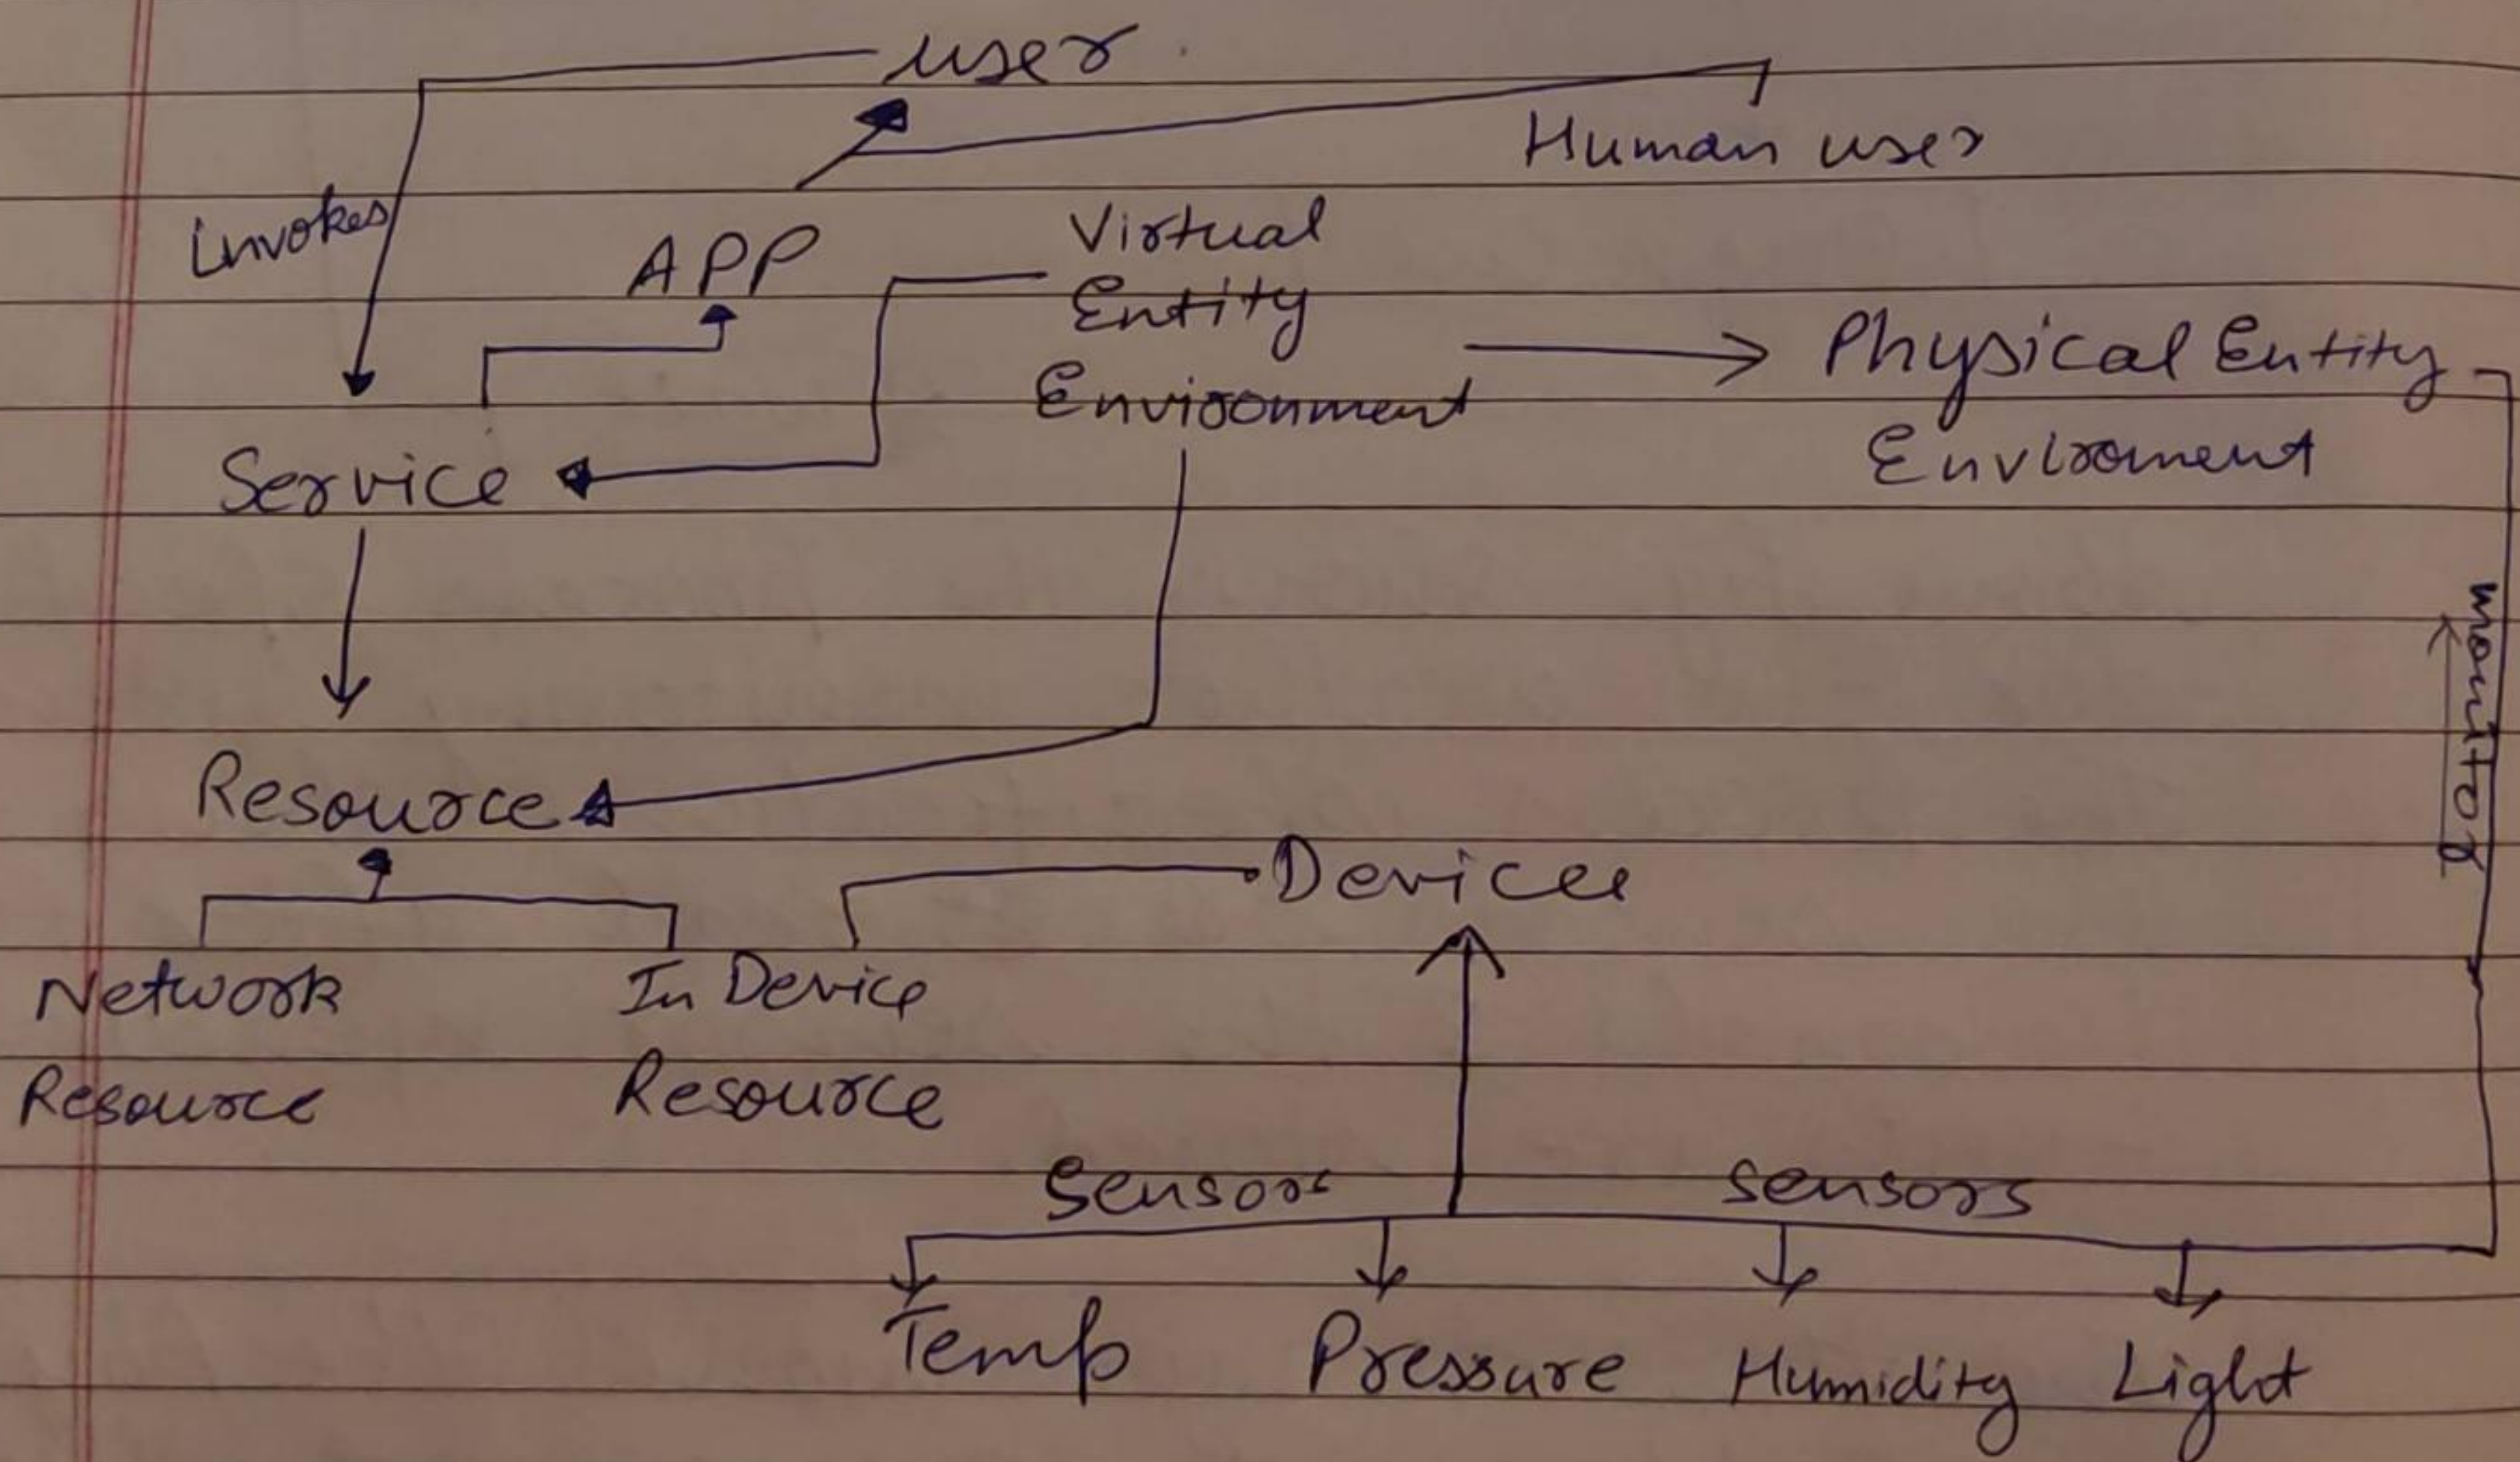 user
Human user
invokes
APP
Virtual
Entity
Environment
Physical Entity
Enviroment
Service
monitor
Resource
Devices
Network
Resource
In Device
Resource
Sensors
sensors
Temp
Pressure
Humidity
Light